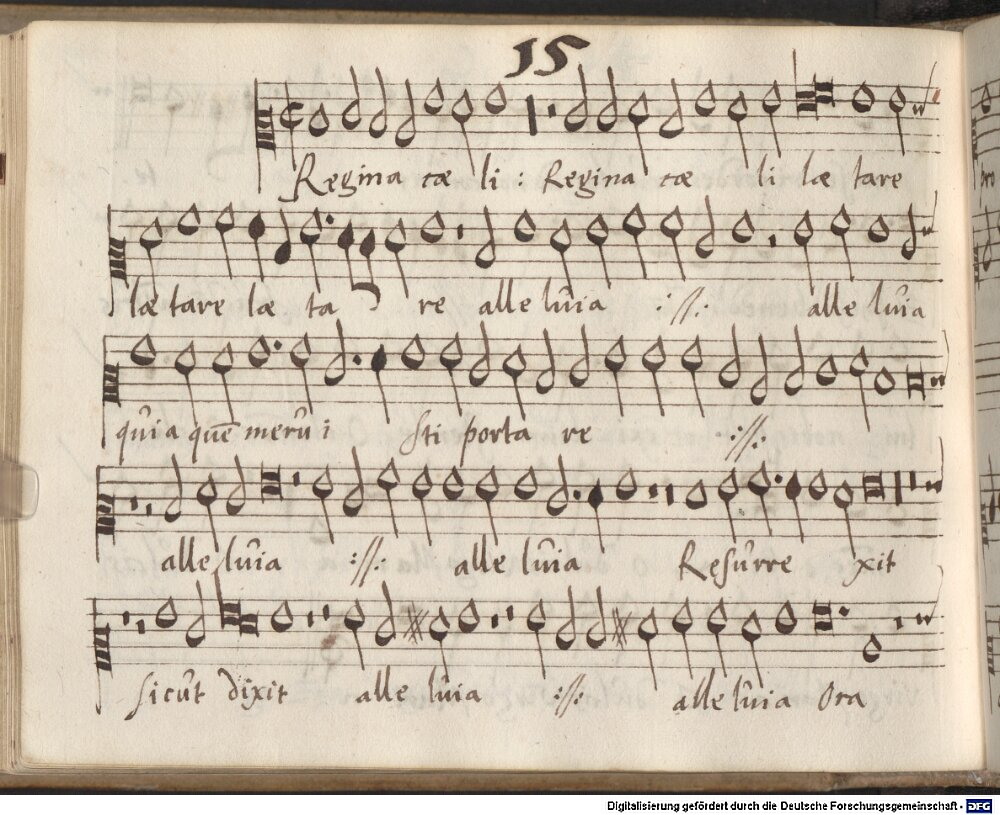 15
Regina cæ li : Regina cæ li læ tare
læ tare læ ta re alle luia :||: alle luia
quia quē merui sti porta re :||:
alle luia :||: alle luia Resurre xit
sicut dixit alle luia :||: alle luia Ora
Digitalisierung gefördert durch die Deutsche Forschungsgemeinschaft - DFG